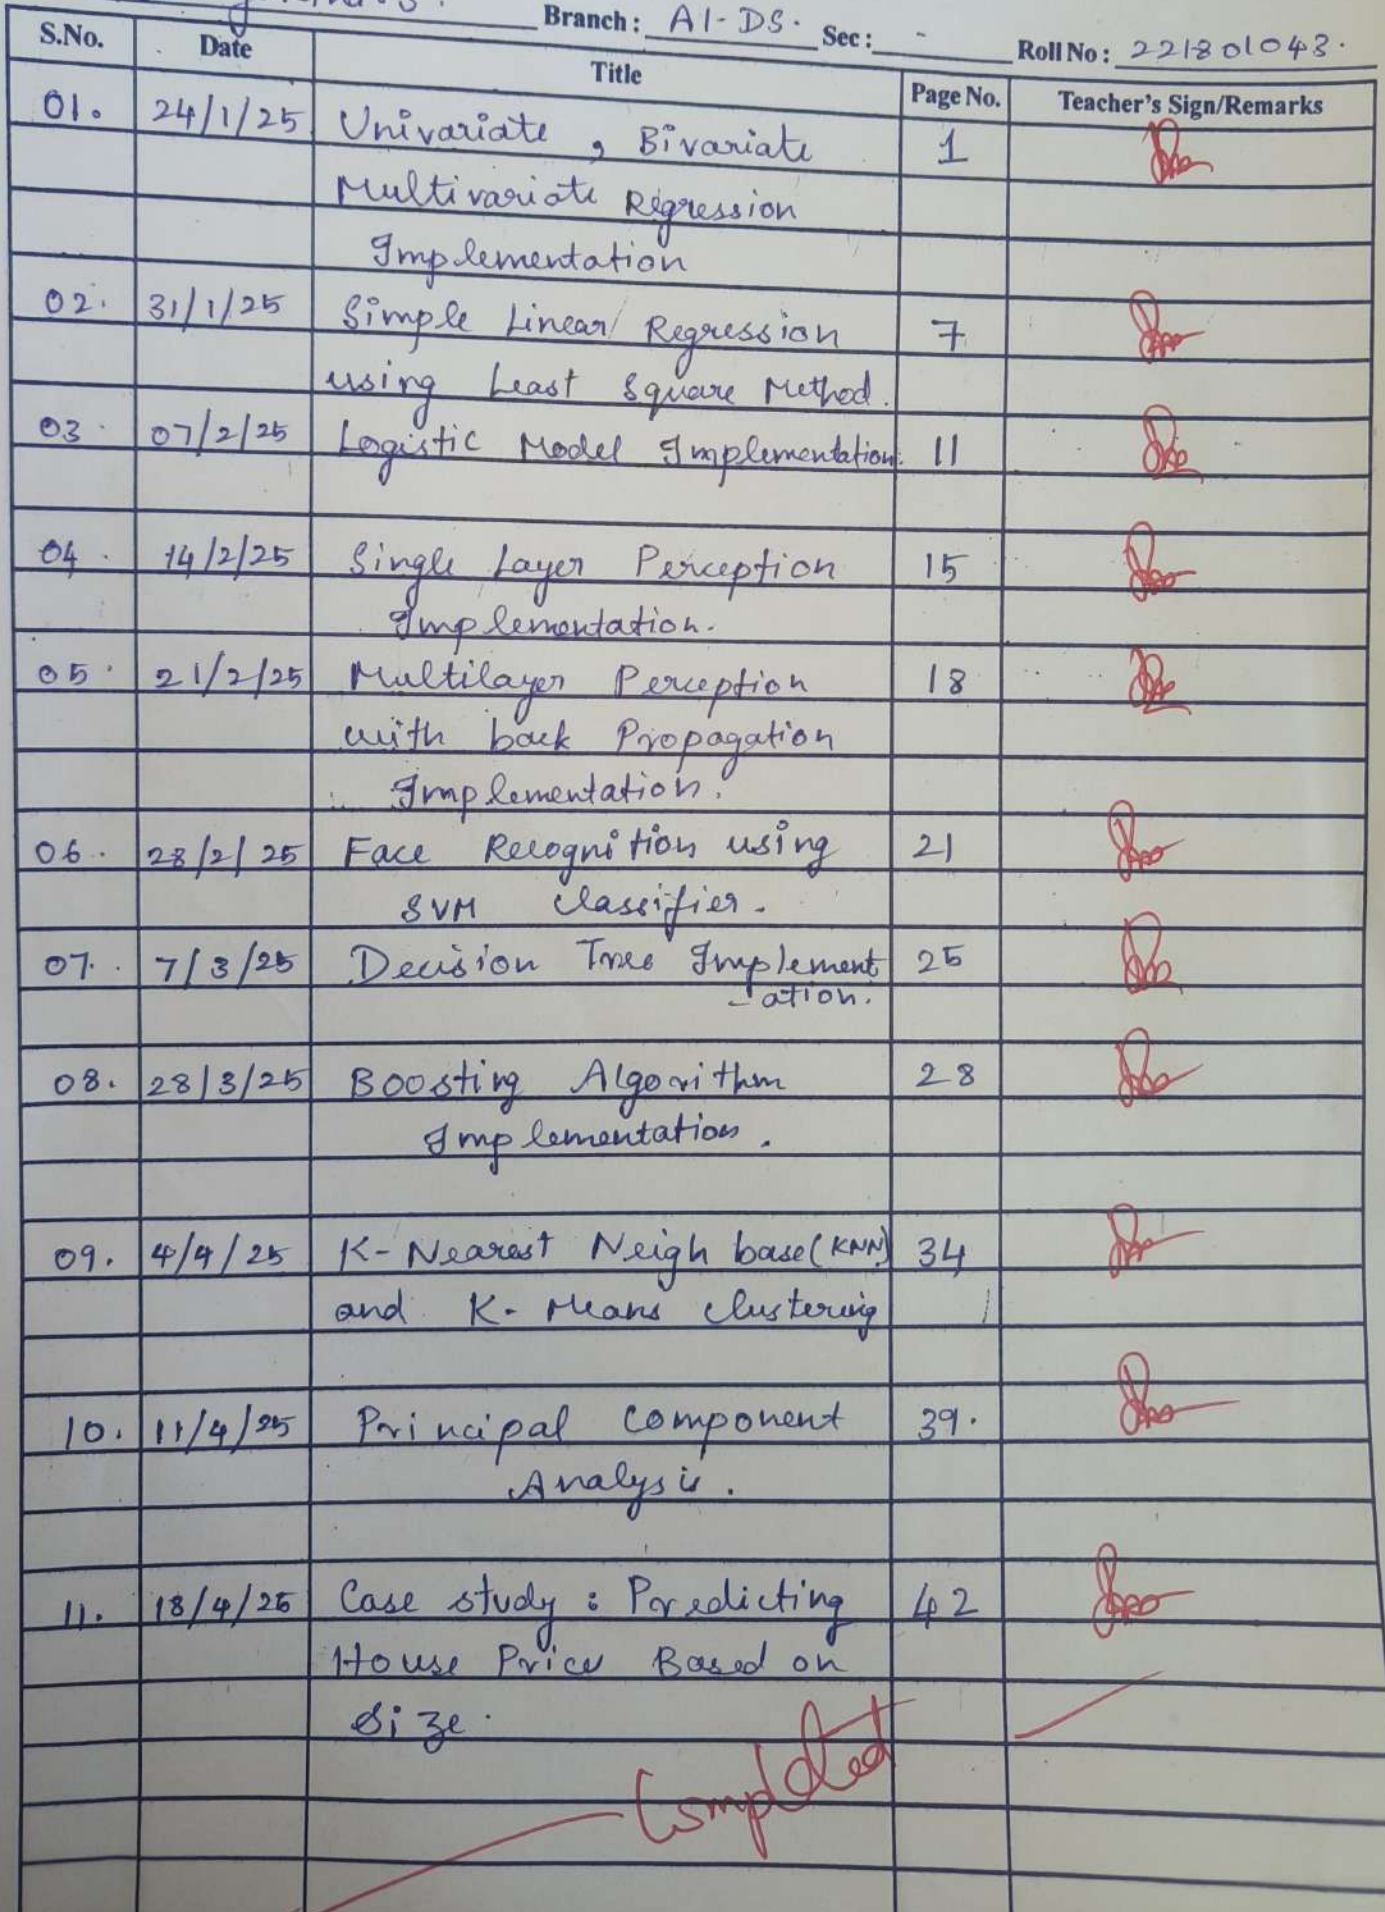 Branch : AI-DS. Sec : - Roll No : 221801043.
S.No. Date Title Page No. Teacher's Sign/Remarks
01. 24/1/25 Univariate , Bivariate 1
Multivariate Regression
Implementation
02. 31/1/25 Simple Linear Regression 7
using Least Square Method.
03 07/2/25 Logistic Model Implementation. 11
04. 14/2/25 Single Layer Perception 15
Implementation.
05. 21/2/25 Multilayer Perception 18
with back Propagation
Implementation.
06. 28/2/25 Face Recognition using 21
SVM classifier.
07. 7/3/25 Decision Tree Implement 25
-ation.
08. 28/3/25 Boosting Algorithm 28
Implementation.
09. 4/4/25 K-Nearest Neigh base (KNN) 34
and K-Means clustering
10. 11/4/25 Principal Component 39.
Analysis.
11. 18/4/25 Case study : Predicting 42
House Price Based on
Size.
Completed